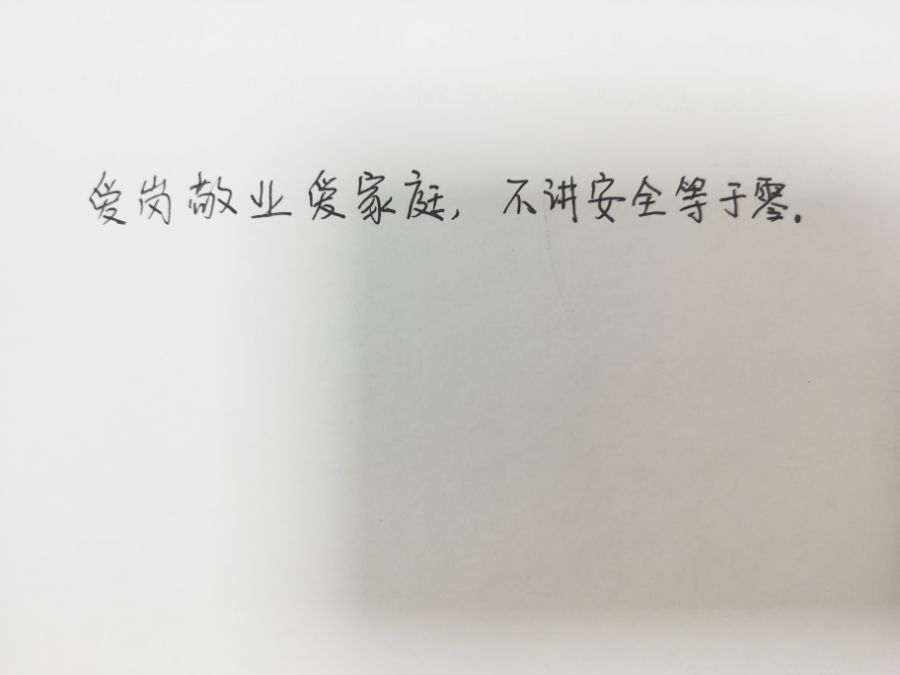 爱岗敬业爱家庭，不讲安全等于零.